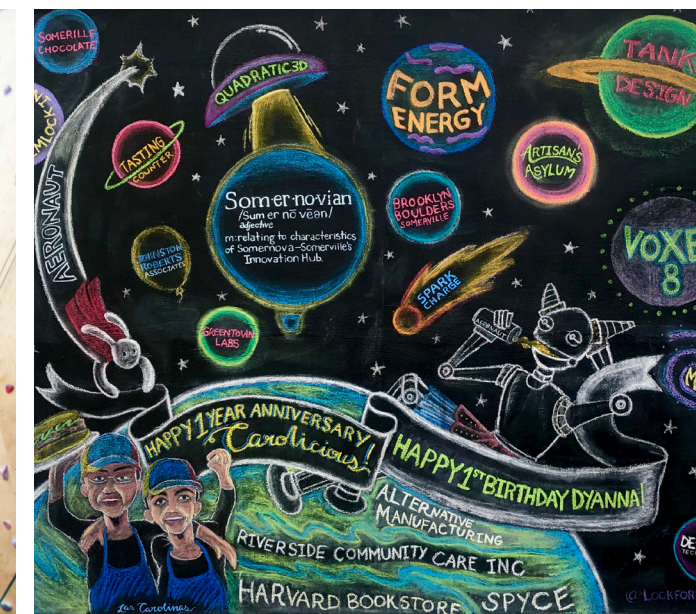 SOMERILLE
CHOCOLATE
QUADRATIC3D
FORM
ENERGY
TANK
DESIGN
TASTING
COUNTER
ARTISAN'S
ASYLUM
AERONAUT
Som·er·no·vian
/Sum er nō vēan/
adjective
m:relating to characteristics
of Somernova-Somerville's
Innovation Hub.
BROOKLYN
BOULDERS
SOMERVILLE
VOXE
8
ROBERTS
ASSOCIATES
SPARK
CHARGE
GREENTOWN
LABS
AERONAUT
HAPPY 1 YEAR ANNIVERSARY
Carolicious!
HAPPY 1ST BIRTHDAY DYANNA!
ALTERNATIVE
MANUFACTURING
RIVERSIDE COMMUNITY CARE INC
HARVARD BOOKSTORE SPYCE
Las Carolinas
DE
@LOCKFOR